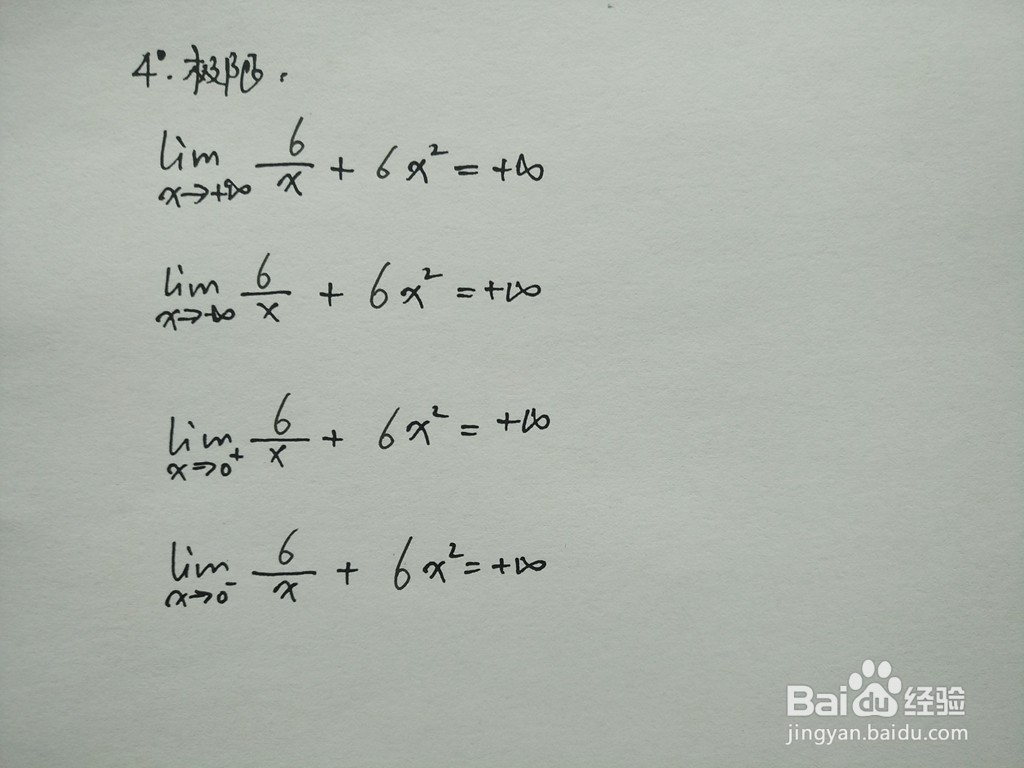 4°. 极限.
lim x→+∞ 6/x + 6x² = +∞
lim x→-∞ 6/x + 6x² = +∞
lim x→0⁺ 6/x + 6x² = +∞
lim x→0⁻ 6/x + 6x² = +∞
Baidu经验
jingyan.baidu.com